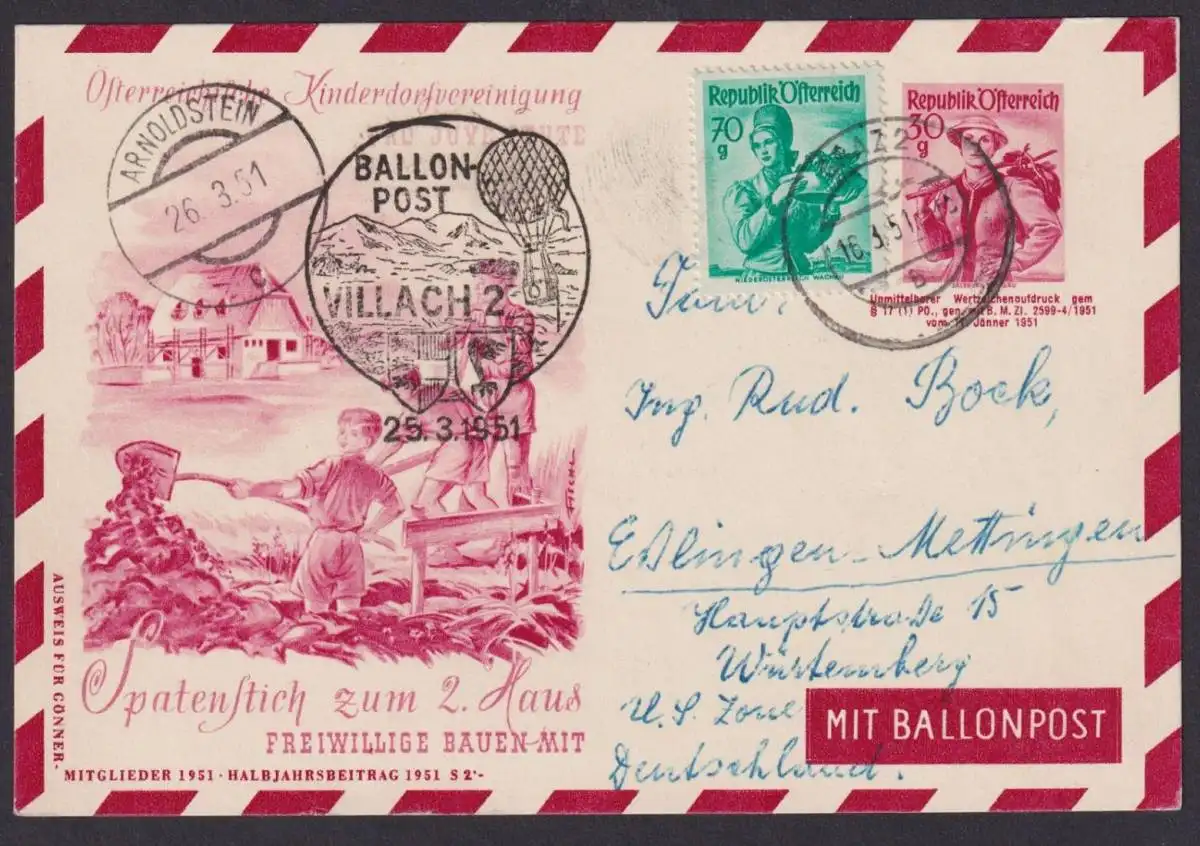 Österreichische Kinderdorfvereinigung
PRO JUVENTUTE
ARNOLDSTEIN
26. 3. 51
c
BALLON-
POST
VILLACH 2
25. 3. 1951
Republik Österreich
70
g
NIEDERÖSTERREICH WACHAU
Republik Österreich
30
g
GRAZ 2
16. 3. 51
Unmittelbarer Wertzeichenaufdruck gem
§ 17 (1) PO., gen. mit B. M. Zl. 2599-4/1951
vom 11. Jänner 1951
Ing. Rud. Bock,
Eßlingen-Mettingen
Hauptstraße 15
Württemberg
U. S. Zone
Deutschland.
MIT BALLONPOST
Spatenstich zum 2. Haus
FREIWILLIGE BAUEN MIT
AUSWEIS FÜR GÖNNER-
MITGLIEDER 1951 · HALBJAHRSBEITRAG 1951 S 2'-